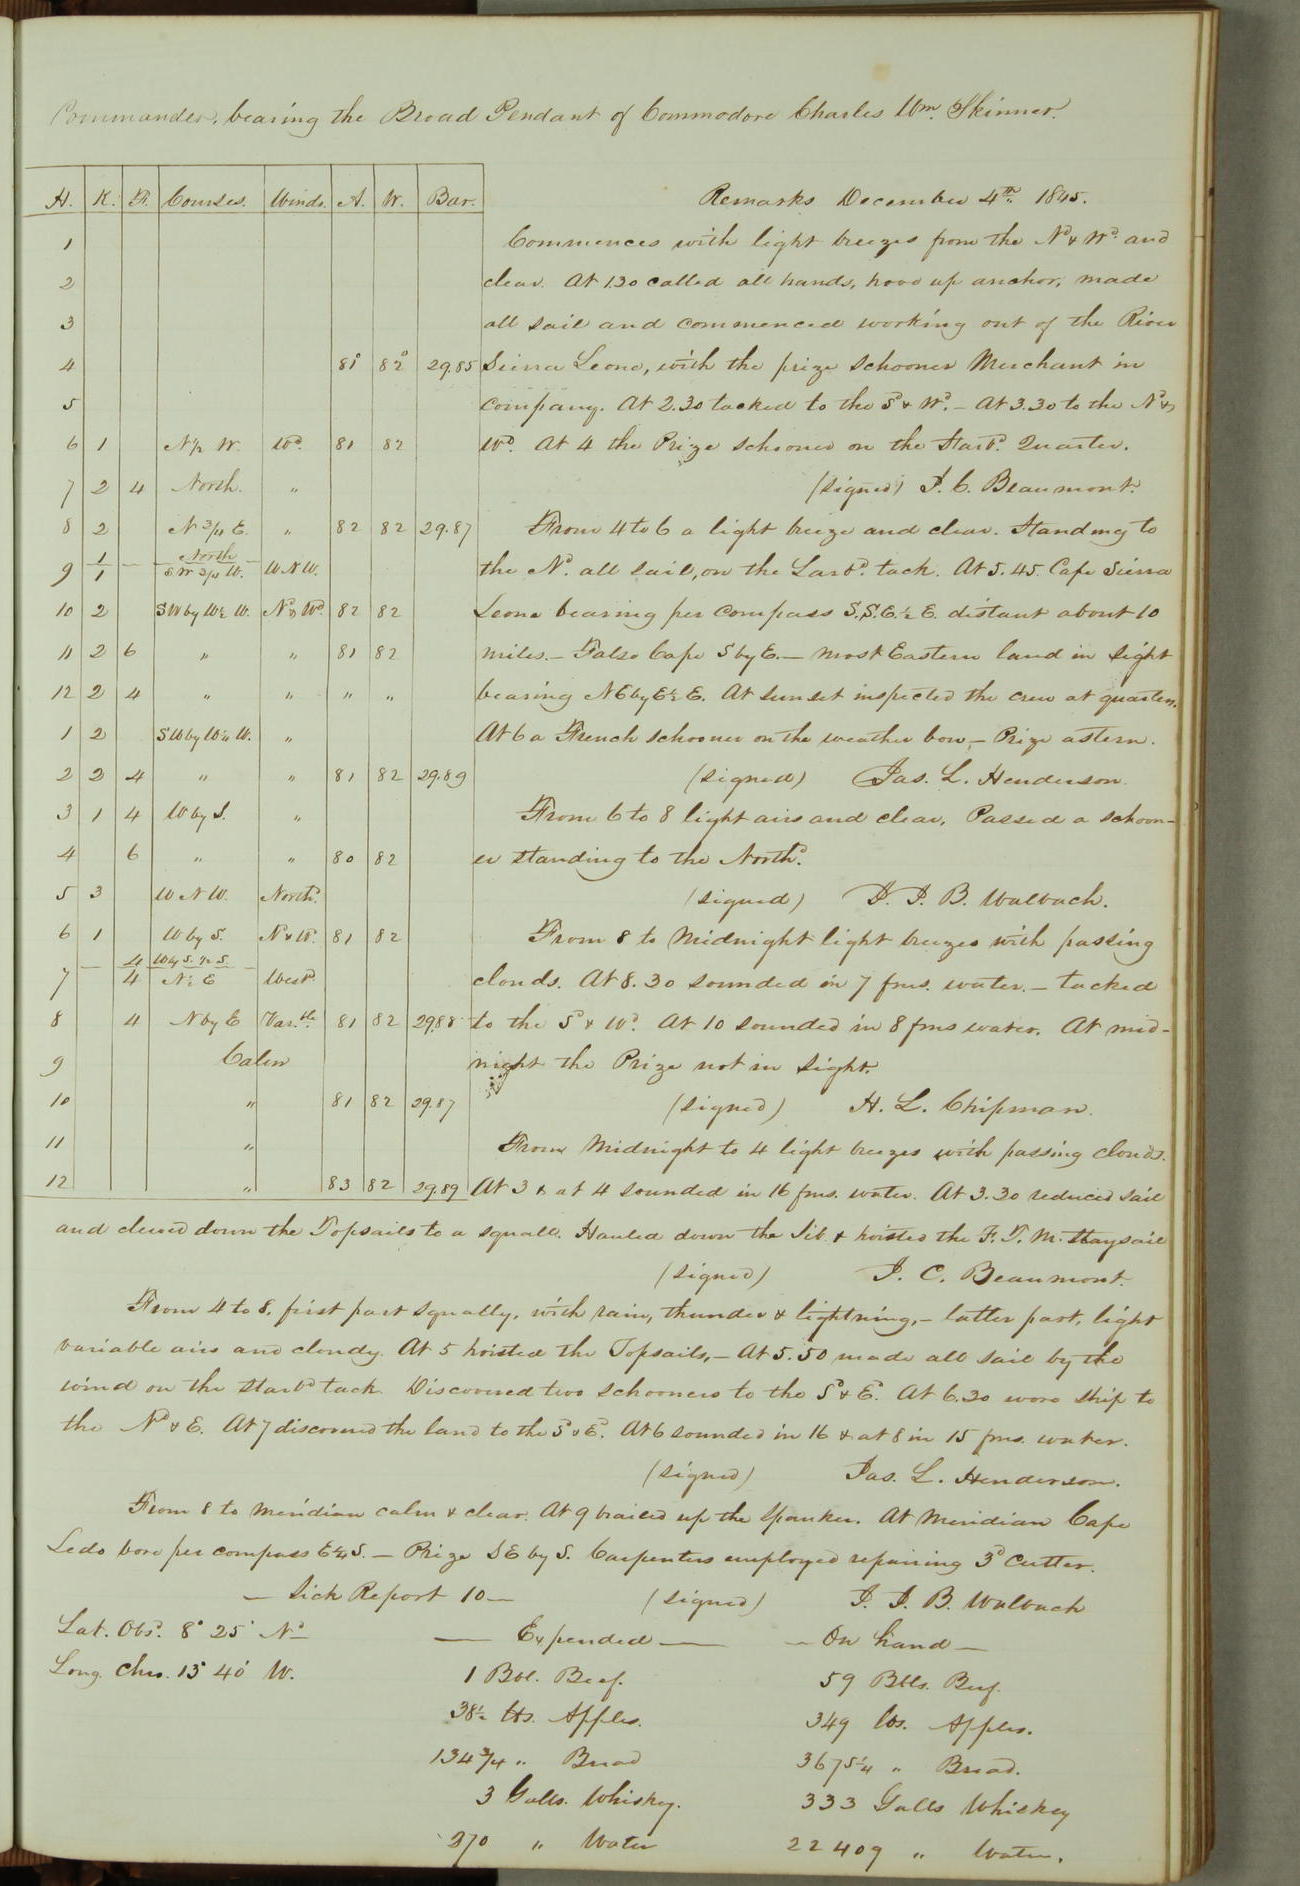 Commander, bearing the Broad Pendant of Commodore Charles Wm. Skinner.
H. K. F. Courses. Winds. A. W. Bar.
Remarks December 4th. 1845.
1
Commences with light breezes from the Nd & Wd. and
2
clear. At 1.30 called all hands, hove up anchor, made
3
all sail and commenced working out of the River
4 81° 82° 29.85
Sierra Leone, with the prize schooner Merchant in
5
company. At 2.30 tacked to the Sd & Wd. – At 3.30 to the Nd &
6 1 N½ W. Wd. 81 82
Wd. At 4 the Prize schooner on the Starbd. Quarter.
7 2 4 North. "
(signed) J. C. Beaumont.
8 2 N 3/4 E. " 82 82 29.87
From 4 to 6 a light breeze and clear. Standing to
9 1/1 North / SW 3/4 W. W.N.W.
the Nd. all sail, on the Larbd. tack. At 5.45. Cape Sierra
10 2 SW by W½ W. Nd & Wd. 82 82
Leone bearing per compass S.S.E.½ E. distant about 10
11 2 6 " " 81 82
miles. – False Cape S by E. – most Eastern land in sight
12 2 4 " " " "
bearing NE by E½ E. At sunset inspected the crew at quarters.
1 2 SW by W¼ W. "
At 6 a French schooner on the weather bow, – Prize astern.
2 2 4 " " 81 82 29.89
(signed) Jas. L. Henderson.
3 1 4 W by S. "
From 6 to 8 light airs and clear, Passed a schoon-
4 6 " " 80 82
er standing to the Northd.
5 3 W N W. Northd.
(signed) J. J. B. Walbach.
6 1 W by S. N & W. 81 82
From 8 to Midnight light breezes with passing
7 4/4 W by S. ½ S. / N½ E Westd.
clouds. At 8.30 sounded in 7 fms. water. – tacked
8 4 N by E Var.ble 81 82 29.88
to the Sd & Wd. At 10 sounded in 8 fms water. At mid-
9 Calm
night the Prize not in sight.
10 " 81 82 29.87
(signed) H. L. Chipman.
11 "
From Midnight to 4 light breezes with passing clouds.
12 " 83 82 29.89
At 3 & at 4 sounded in 16 fms. water. At 3.30 reduced sail
and clewed down the Topsails to a squall. Hauled down the Jib & hoisted the F. T. M. Staysail
(signed) J. C. Beaumont.
From 4 to 8, first part squally, with rain, thunder & lightning, – latter part, light
variable airs and cloudy. At 5 hoisted the Topsails, – At 5.50 made all sail by the
wind on the Starbd tack. Discovered two schooners to the Sd & Ed. At 6.30 wore ship to
the Nd & E. At 7 discovered the land to the Sd & Ed. At 6 sounded in 16 & at 8 in 15 fms. water.
(signed) Jas. L. Henderson.
From 8 to Meridian calm & clear. At 9 brailed up the Spanker. At Meridian Cape
Ledo bore per compass E¼ S. – Prize SE by S. Carpenters employed repairing 3d Cutter.
– Sick Report 10 – (signed) J. J. B. Walbach
Lat. Obsd. 8° 25' Nd
– Expended – – On hand –
Long. Chro. 13° 40' W.
1 Bbl. Beef. 59 Bbls. Beef.
38½ lbs. Apples. 349 lbs. Apples.
134 3/4 " Bread 3675¼ " Bread.
3 Galls. Whiskey. 333 Galls Whiskey
370 " Water 22409 " Water.